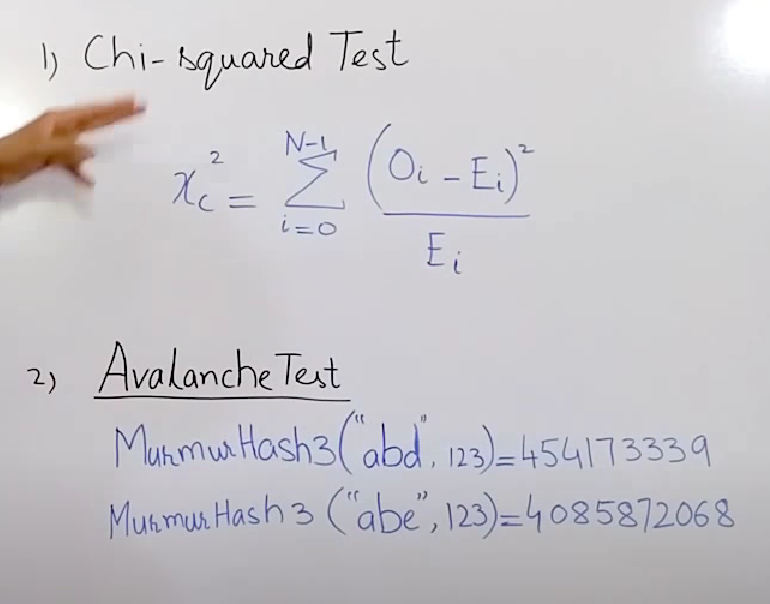 1) Chi-squared Test
χc² = Σ_{i=0}^{N-1} (Oi - Ei)² / Ei
2) Avalanche Test
MurmurHash3("abd", 123)=454173339
MurmurHash3 ("abe", 123)=4085872068